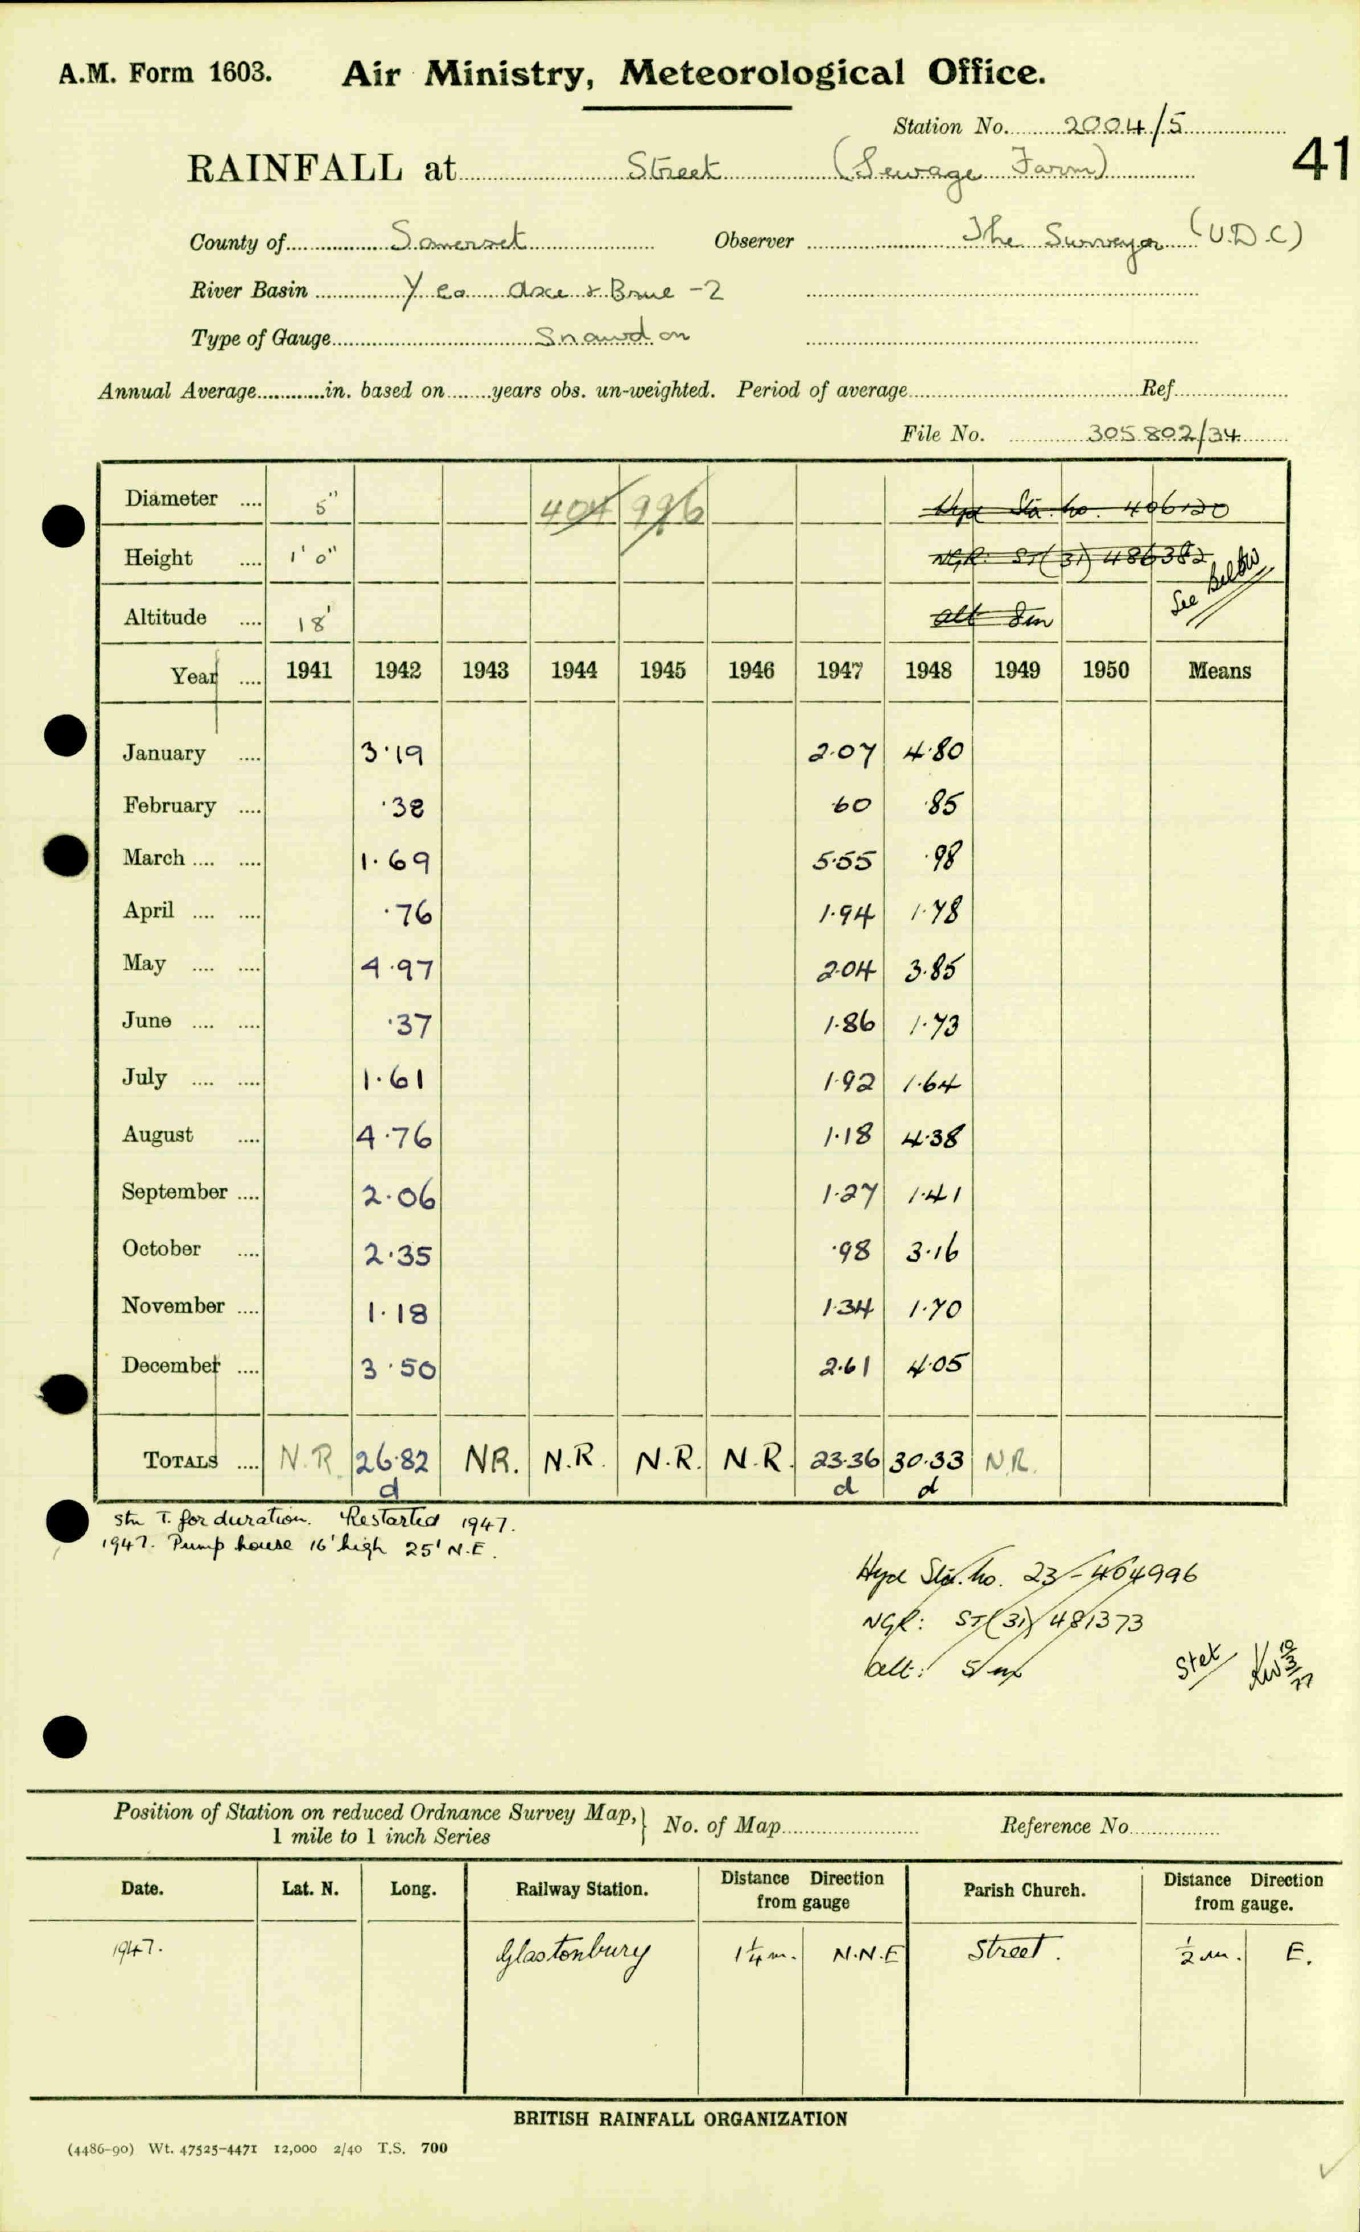 A.M. Form 1603. Air Ministry, Meteorological Office.
Station No. 2004/5
41
RAINFALL at Street (Sewage Farm)
County of Somerset Observer The Surveyor (U.D.C)
River Basin Yeo Axe & Brue -2
Type of Gauge Snowdon
Annual Average in. based on years obs. un-weighted. Period of average Ref
File No. 305802/34
Diameter 5" 404 996 Hyd Sta. no. 406120
Height 1' 0" NGR: ST(31) 486382
See Below
Altitude 18' alt 8m
Year 1941 1942 1943 1944 1945 1946 1947 1948 1949 1950 Means
January 3·19 2·07 4·80
February ·38 ·60 ·85
March 1·69 5·55 ·98
April ·76 1·94 1·78
May 4·97 2·04 3·85
June ·37 1·86 1·73
July 1·61 1·92 1·64
August 4·76 1·18 4·38
September 2·06 1·27 1·41
October 2·35 ·98 3·16
November 1·18 1·34 1·70
December 3·50 2·61 4·05
TOTALS N.R. 26·82 NR. N.R. N.R. N.R. 23·36 30·33 N.R.
d d d
Stn T. for duration. Restarted 1947.
1947. Pump house 16' high 25' N.E.
Hyd Sta. no. 23-404996
NGR: ST(31) 481373
alt: 5m
Stet
Position of Station on reduced Ordnance Survey Map,
1 mile to 1 inch Series } No. of Map Reference No
Date. Lat. N. Long. Railway Station. Distance Direction from gauge Parish Church. Distance Direction from gauge.
1947. Glastonbury 1¼ m. N.N.E Street. ½ m. E.
BRITISH RAINFALL ORGANIZATION
(4486-90) Wt. 47525-4471 12,000 2/40 T.S. 700